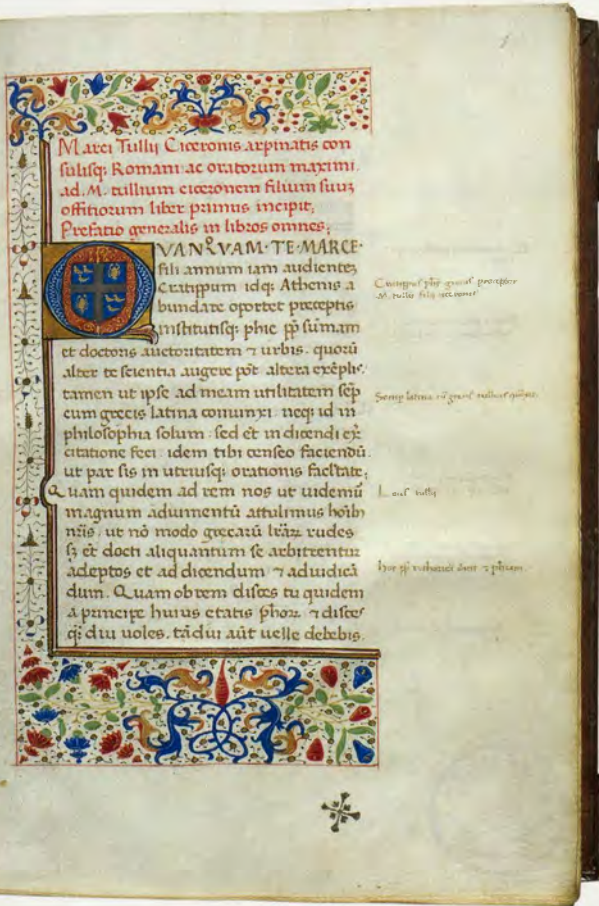 Marci Tullij Ciceronis arpinatis con
sulisq; Romani ac oratorum maximi
ad. M. tullium ciceronem filium suuʒ
offitiorum liber primus incipit;
Prefatio generalis in libros omnes;
QVANQVAM·TE·MARCE·
fili annum iam audienteʒ
Cratippum idq; Athenis a
bundare oportet preceptis
institutisq; phie ꝓp sūmam
et doctoris auctoritatem ⁊ urbis. quorū
alter te scientia augere pōt altera exēplis.
tamen ut ipse ad meam utilitatem sēp
cum grecis latina coniunxi. neq; id in
philosophia solum. sed et in dicendi ex̄
citatione feci. idem tibi censeo faciendū.
ut par sis in utriusq; orationis facltate;
Quam quidem ad rem nos ut uidemū
magnum adiumentū attulimus hoīb
nr̄is. ut nō modo grecarū lr̄aꝝ rudes
sꝫ et docti aliquantum se arbitrentur
adeptos et ad dicendum ⁊ adiudicā
dum. Quam ob rem disces tu quidem
a principe huius etatis phoꝝ ⁊ disces
q̄ diu uoles. tādiu aūt uelle debebis.
Cratippus grecus preceptor
M. tullii filii ciceronis
Semp latina cū grecis
tullii